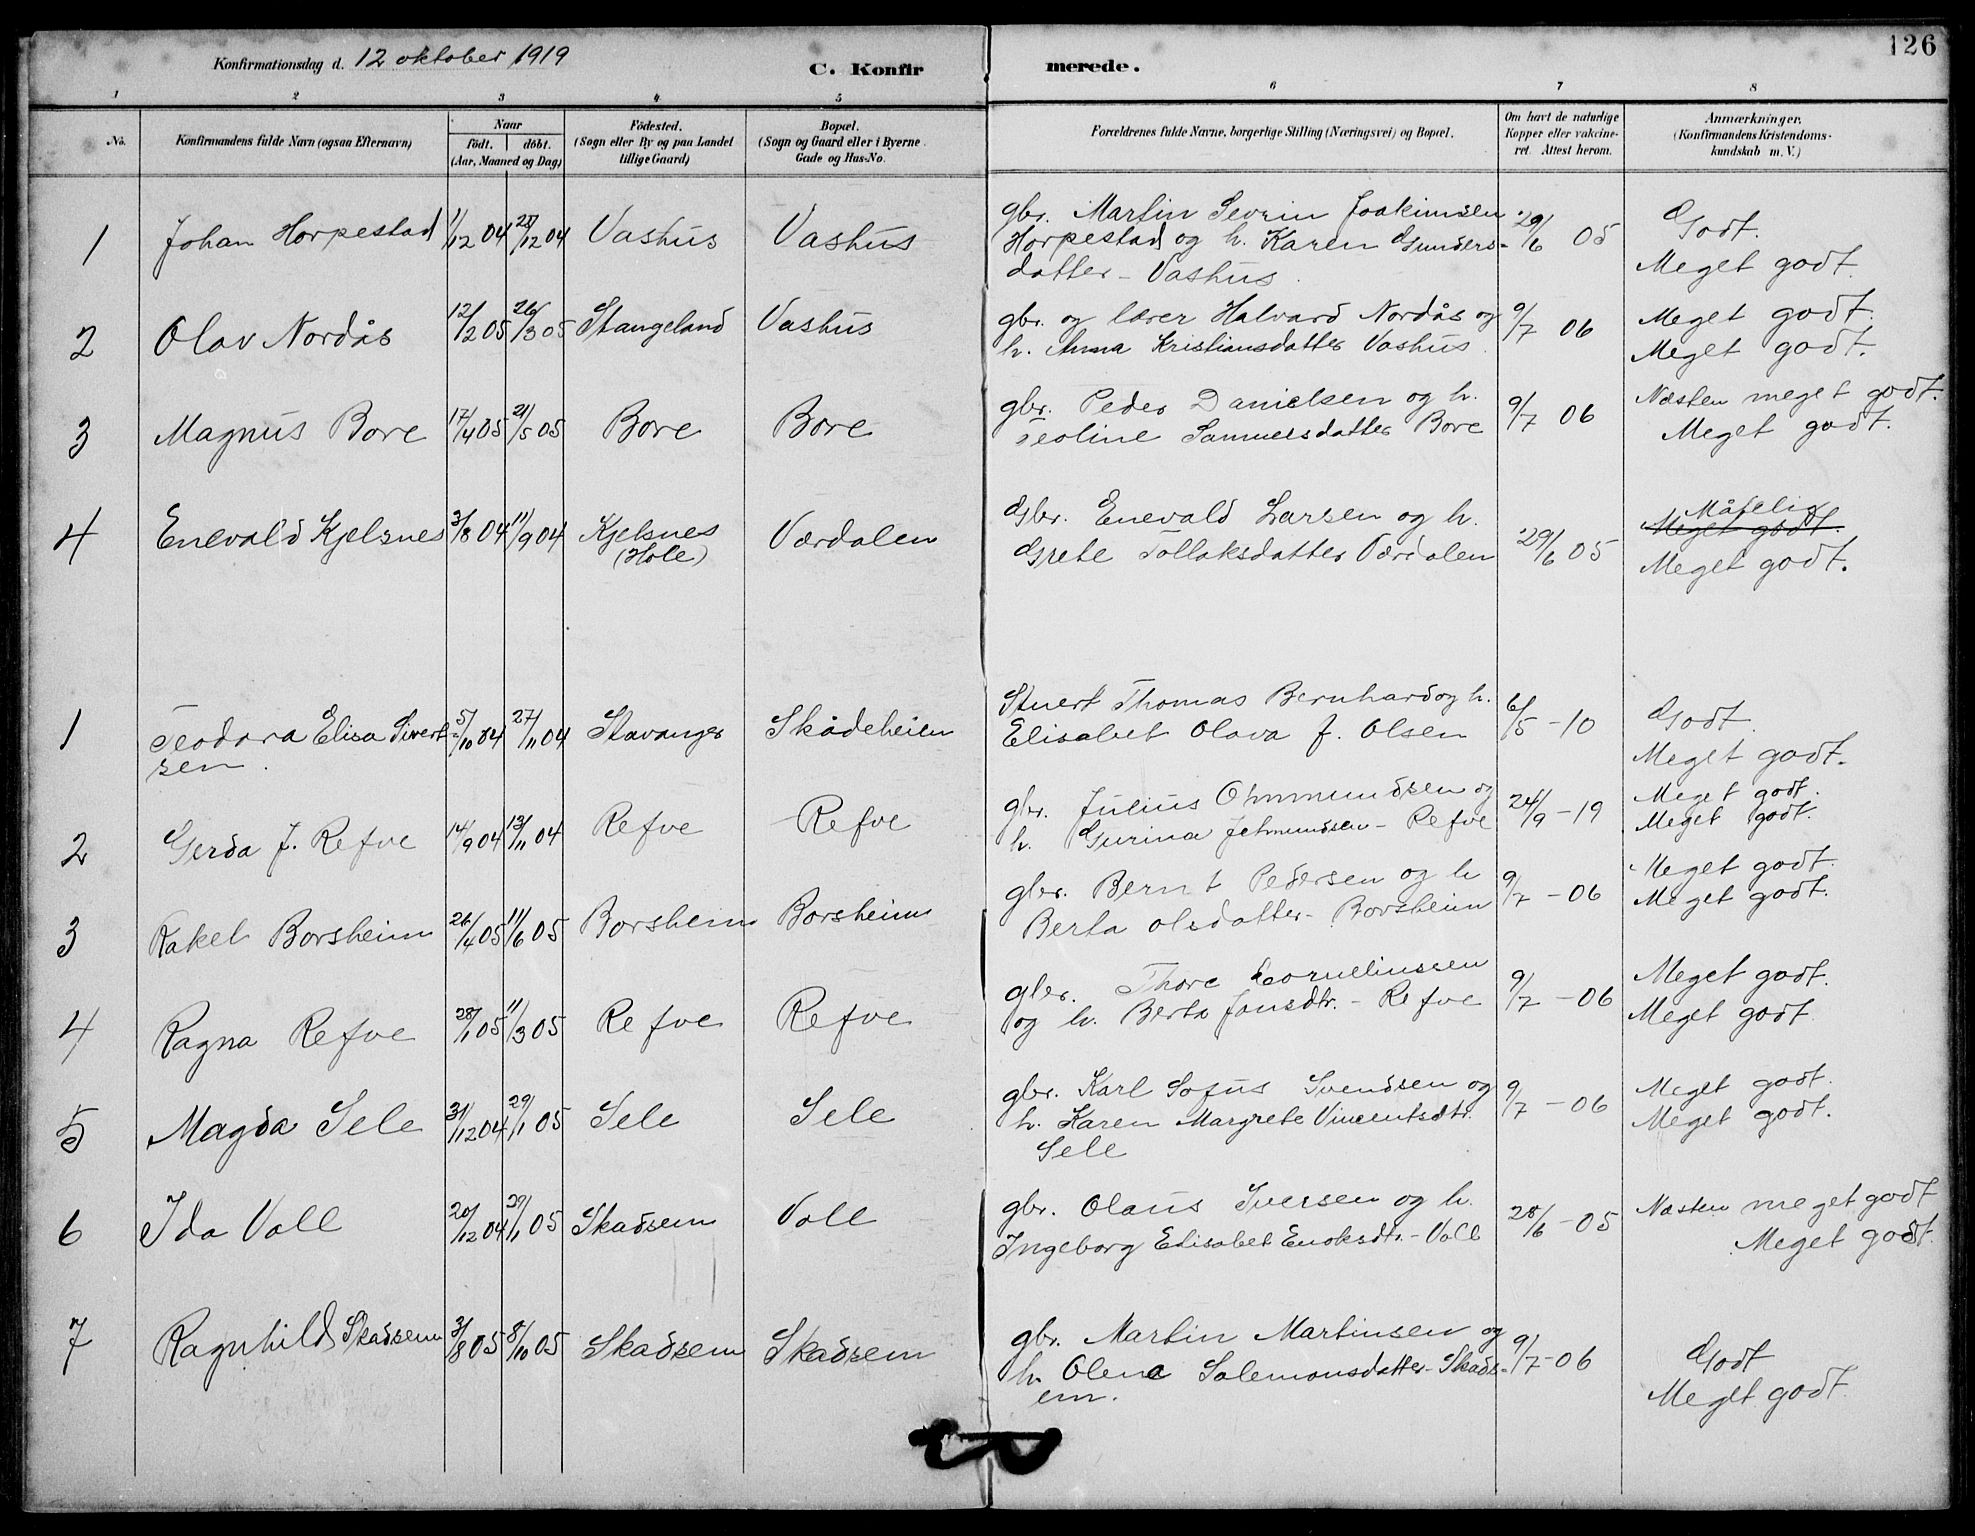 126
Konfirmationsdag d. 12 oktober 1919
C. Konfirmerede.
1 2 3 4 5 6 7 8
No.
Konfirmandens fulde Navn (ogsaa Efternavn)
Naar
født. døbt.
(Aar, Maaned og Dag)
Fødested.
(Sogn eller By og paa Landet
tillige Gaard)
Bopæl.
(Sogn og Gaard eller i Byerne
Gade og Hus-No.
Forældrenes fulde Navne, borgerlige Stilling (Næringsvei) og Bopæl.
Om havt de naturlige
Kopper eller vakcine-
ret. Attest herom.
Anmærkninger.
(Konfirmandens Kristendoms-
kundskab m. V.)
1 Johan Horpestad 1/12 04 28/12 04 Vashus Vashus
gbr. Martin Sevrin Joakimsen
Horpestad og h. Karen Gunders-
datter - Vashus.
29/6 05
Godt.
Meget godt.
2 Olav Nordås 12/2 05 26/3 05 Stangeland Vashus
gbr. og lærer Halvard Nordås og
h. Anna Kristiansdatter Vashus.
9/7 06
Meget godt.
Meget godt.
3 Magnus Bore 17/4 05 21/5 05 Bore Bore
gbr. Peder Danielsen og h.
Teoline Samuelsdatter Bore
9/7 06
Næsten meget godt.
Meget godt.
4 Enevald Kjelsnes 3/8 04 11/9 04 Kjelsnes
(Hole)
Værdalen
Gbr. Enevald Larsen og h.
Grete Tollaksdatter Værdalen
29/6 05
Måtelig
Meget godt.
Meget godt.
1 Teodora Elisa Sivert-
sen.
5/10 04 27/11 04 Stavanger Skådeheien
Stuert Thomas Bernhard og h.
Elisabet Olava f. Olsen
6/5 - 10
Godt.
Meget godt.
2 Gerda J. Refve 14/9 04 13/11 04 Refve Refve
gbr. Julius Ommundsen og
h. Gurina Jetmundsen - Refve
24/9 - 19
Meget godt.
Meget godt.
3 Rakel Borsheim 26/4 05 11/6 05 Borsheim Borsheim
gbr. Bernt Pedersen og h
Berta Olsdatter - Borsheim
9/7 - 06
Meget godt.
Meget godt.
4 Ragna Refve 28/1 05 11/3 05 Refve Refve
gbr. Thore Cornelinssen
og h. Berta Jonsdtr. - Refve
9/7 - 06
Meget godt.
Meget godt
5 Magda Sele 31/12 04 29/1 05 Sele Sele
gbr. Karl Sofus Svendsen og
h. Karen Margrete Vincentsdtr.
Sele
9/7 - 06
Meget godt.
Meget godt.
6 Ida Voll 20/12 04 29/1 05 Skadsem Voll
gbr. Olaus Iversen og h.
Ingeborg Elisabet Enoksdtr. - Voll
28/6 - 05
Næsten meget godt
Meget godt.
7 Ragnhild Skadsem 3/8 05 8/10 05 Skadsem Skadsem
gbr. Martin Martinsen og
h Olene Salemonsdatter - Skads-
em.
9/7 - 06
Godt
Meget godt.